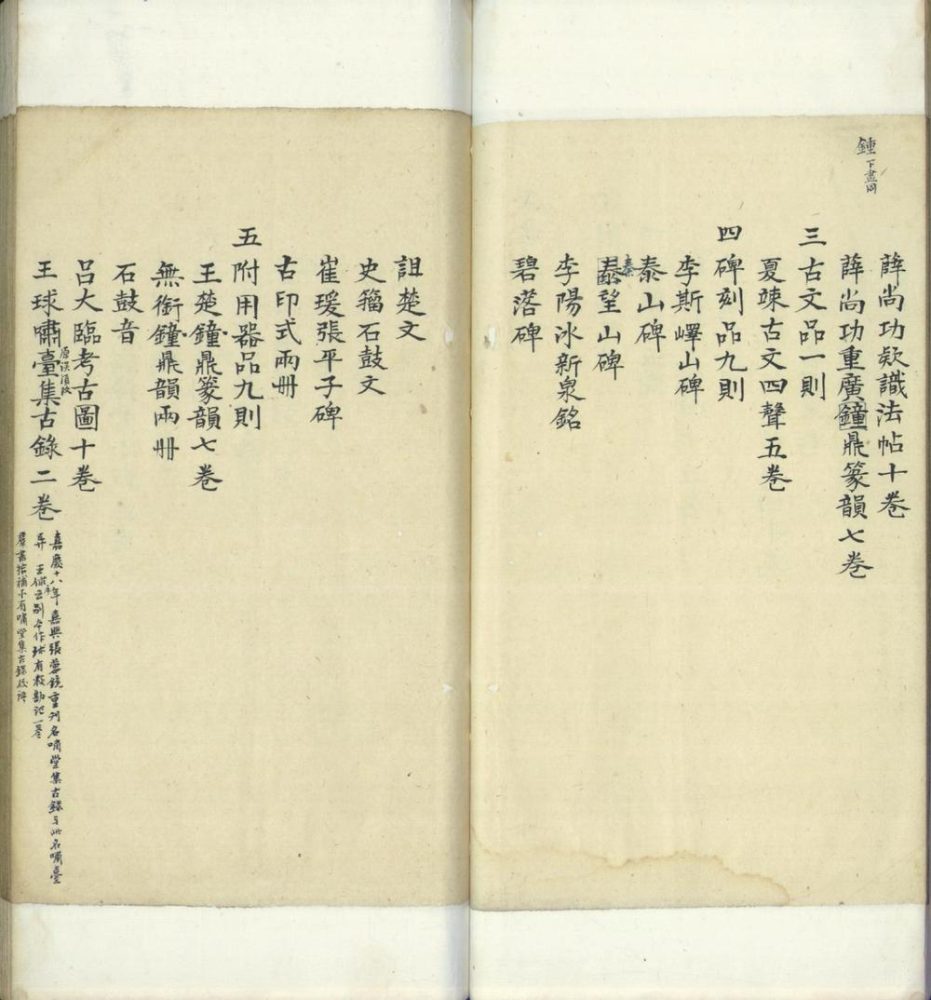 鍾下畫同
薛尚功欵識法帖十卷
薛尚功重廣鐘鼎篆韻七卷
三古文品一則
夏竦古文四聲五卷
四碑刻品九則
李斯嶧山碑
泰山碑
秦望山碑
李陽冰新泉銘
碧落碑
詛楚文
史籀石鼓文
崔瑗張平子碑
古印式兩冊
五附用器品九則
王楚鐘鼎篆韻七卷
無銜鐘鼎韻兩冊
石鼓音
呂大臨考古圖十卷
王球嘯臺集古錄二卷
原誤須改
嘉慶十八年嘉興張蓉鏡重刊名嘯堂集古錄与此名嘯臺
異 王俅本云別本作球有校勘記一卷
羣書拾補亦有嘯堂集古錄校補